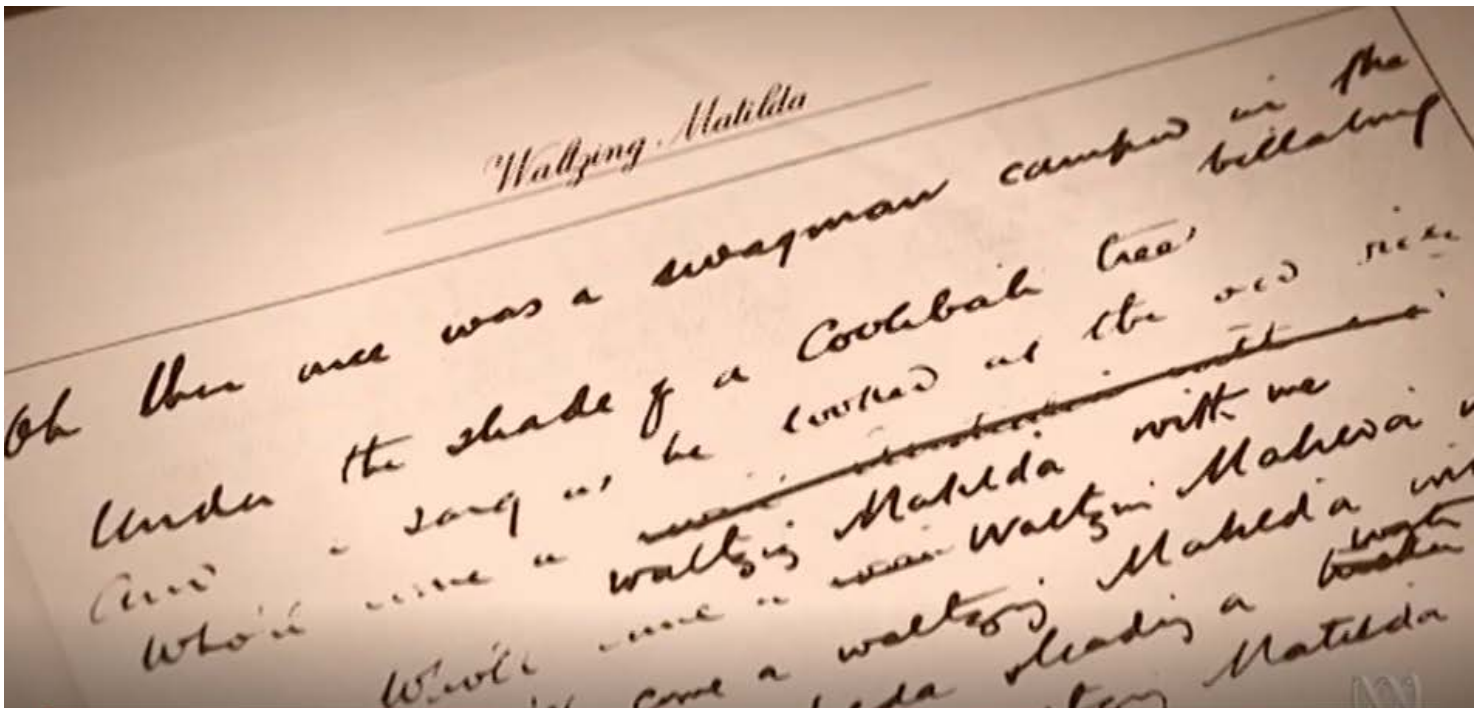 Waltzing Matilda
Oh there once was a swagman camped in the
billabong
Under the shade of a Coolibah tree
And sang as he looked at the old
Who'll come a
waltzing Matilda with me
Who'll come a Waltzing Matilda
come a waltzing Matilda
leading a water
Matilda